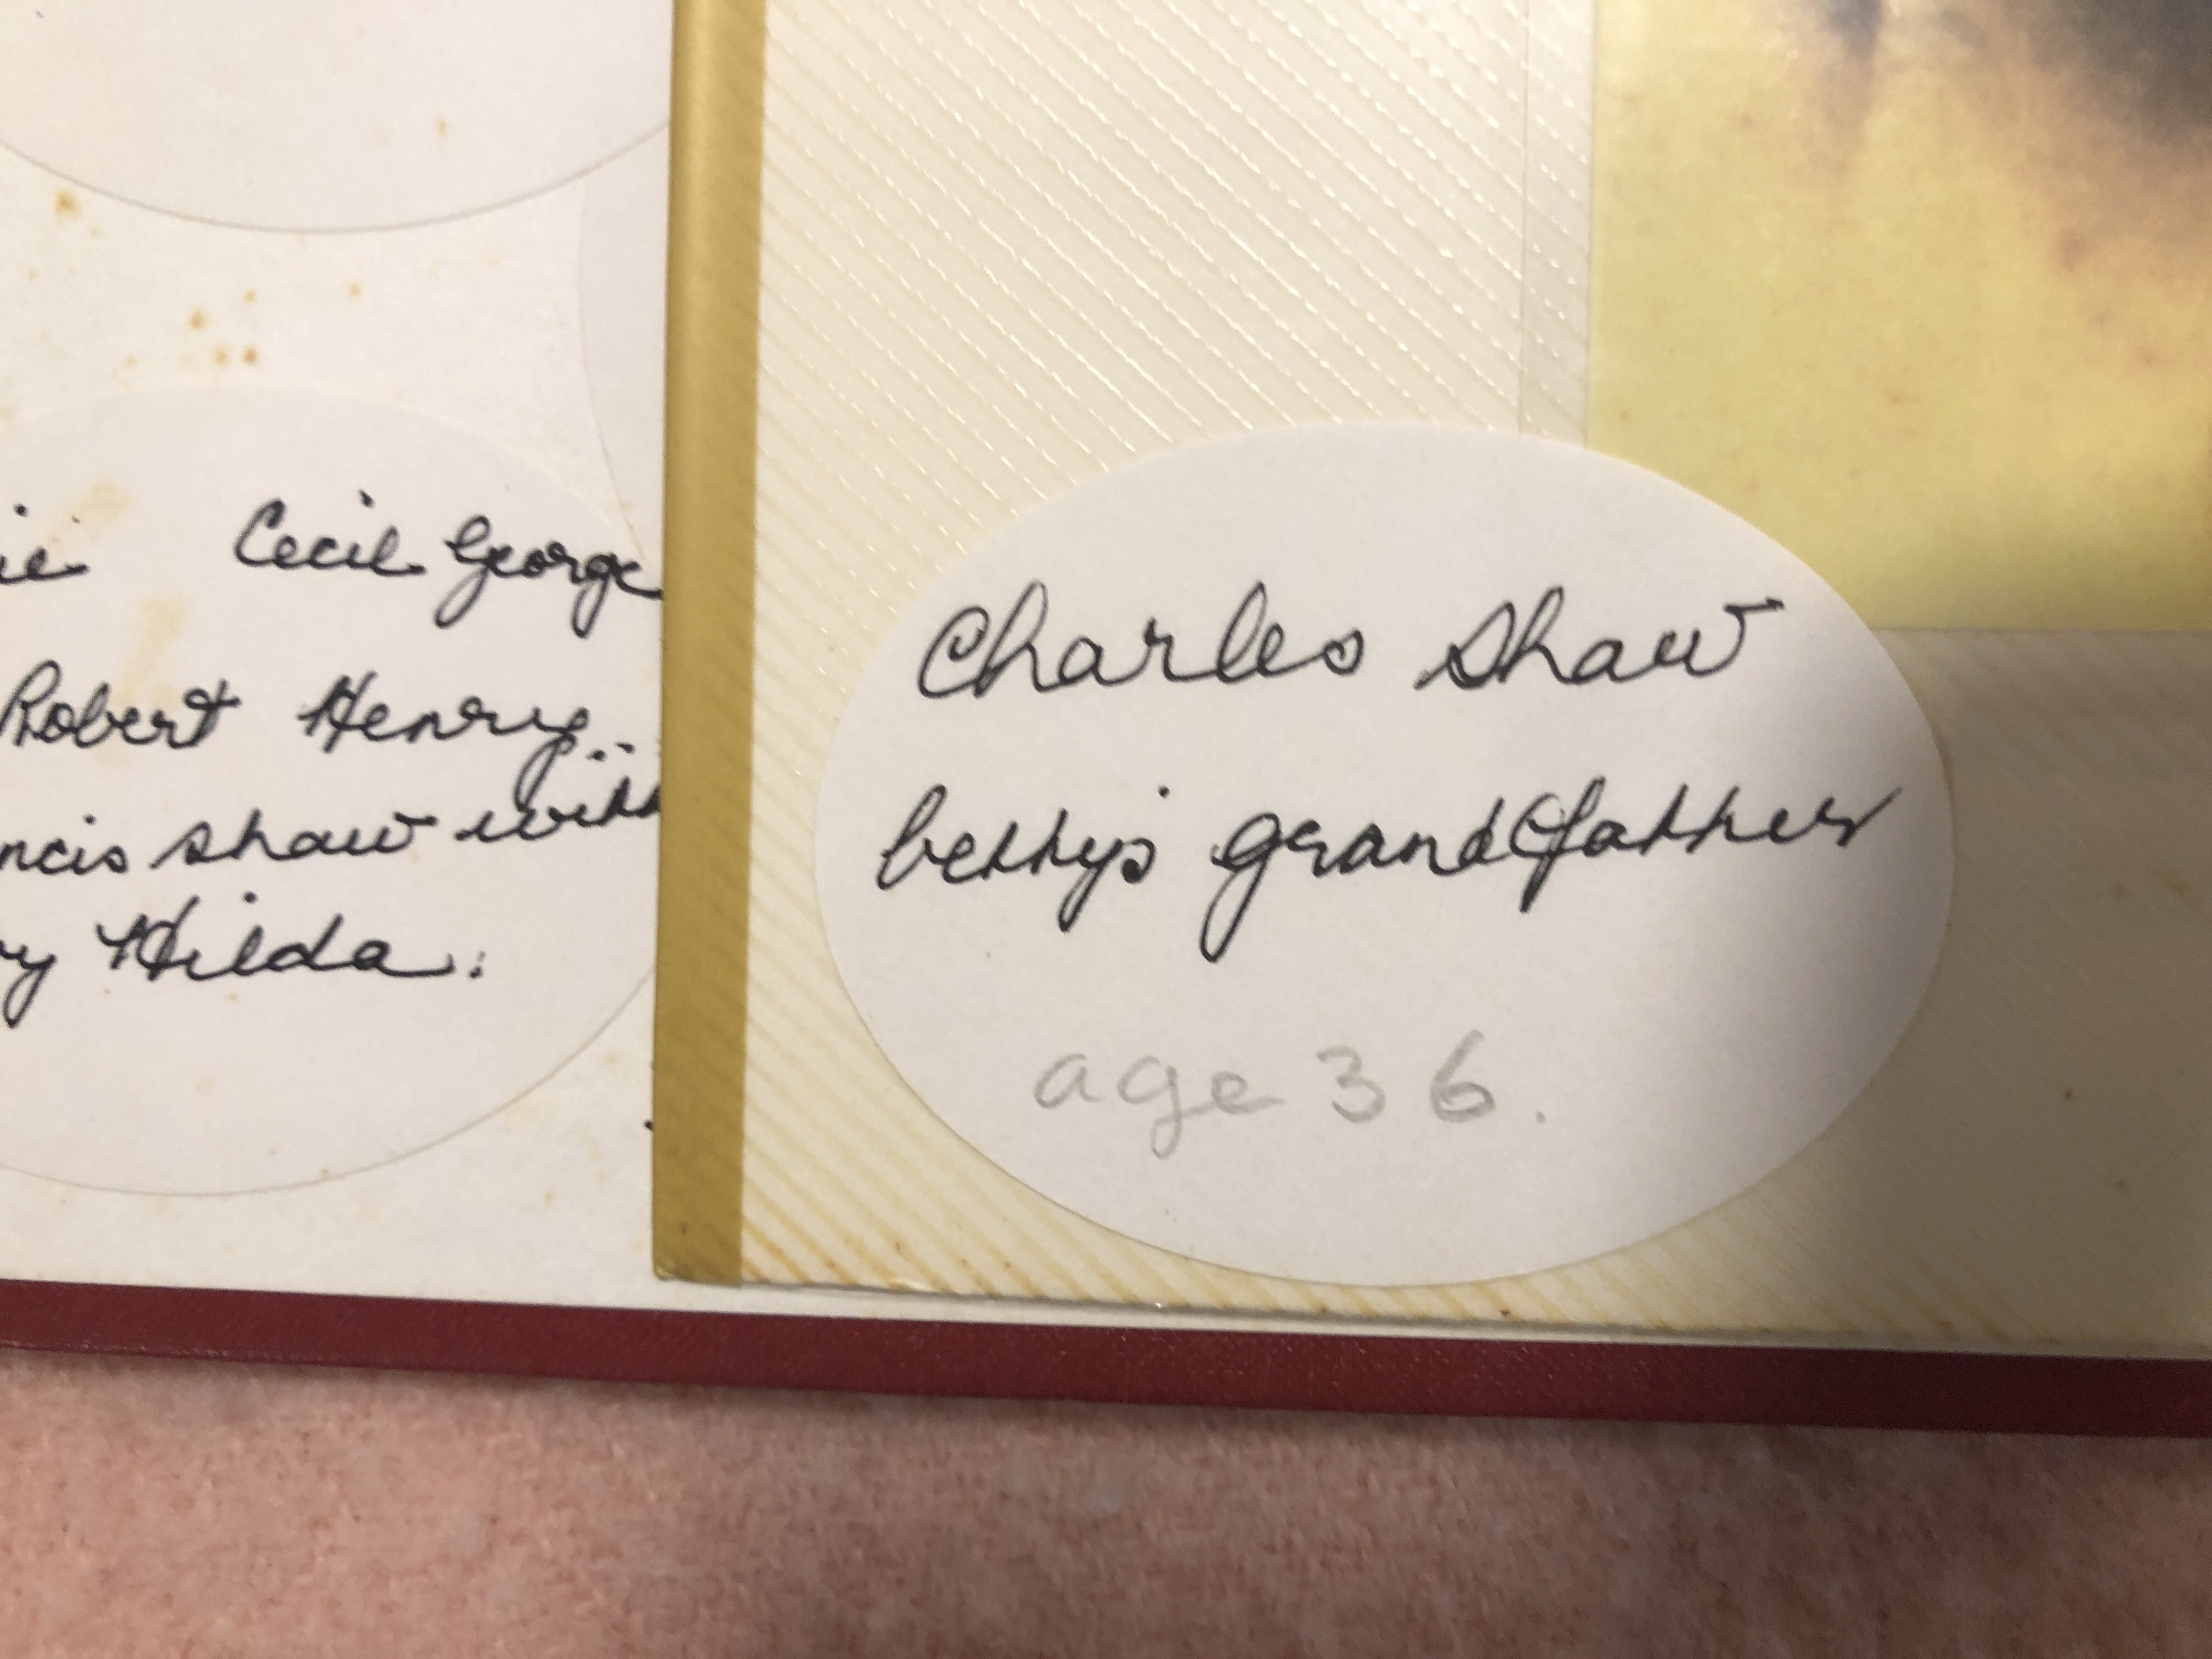 Cecil George
Robert Henry..
Shaw with
Hilda.
Charles Shaw
betty's grandfather
age 36.